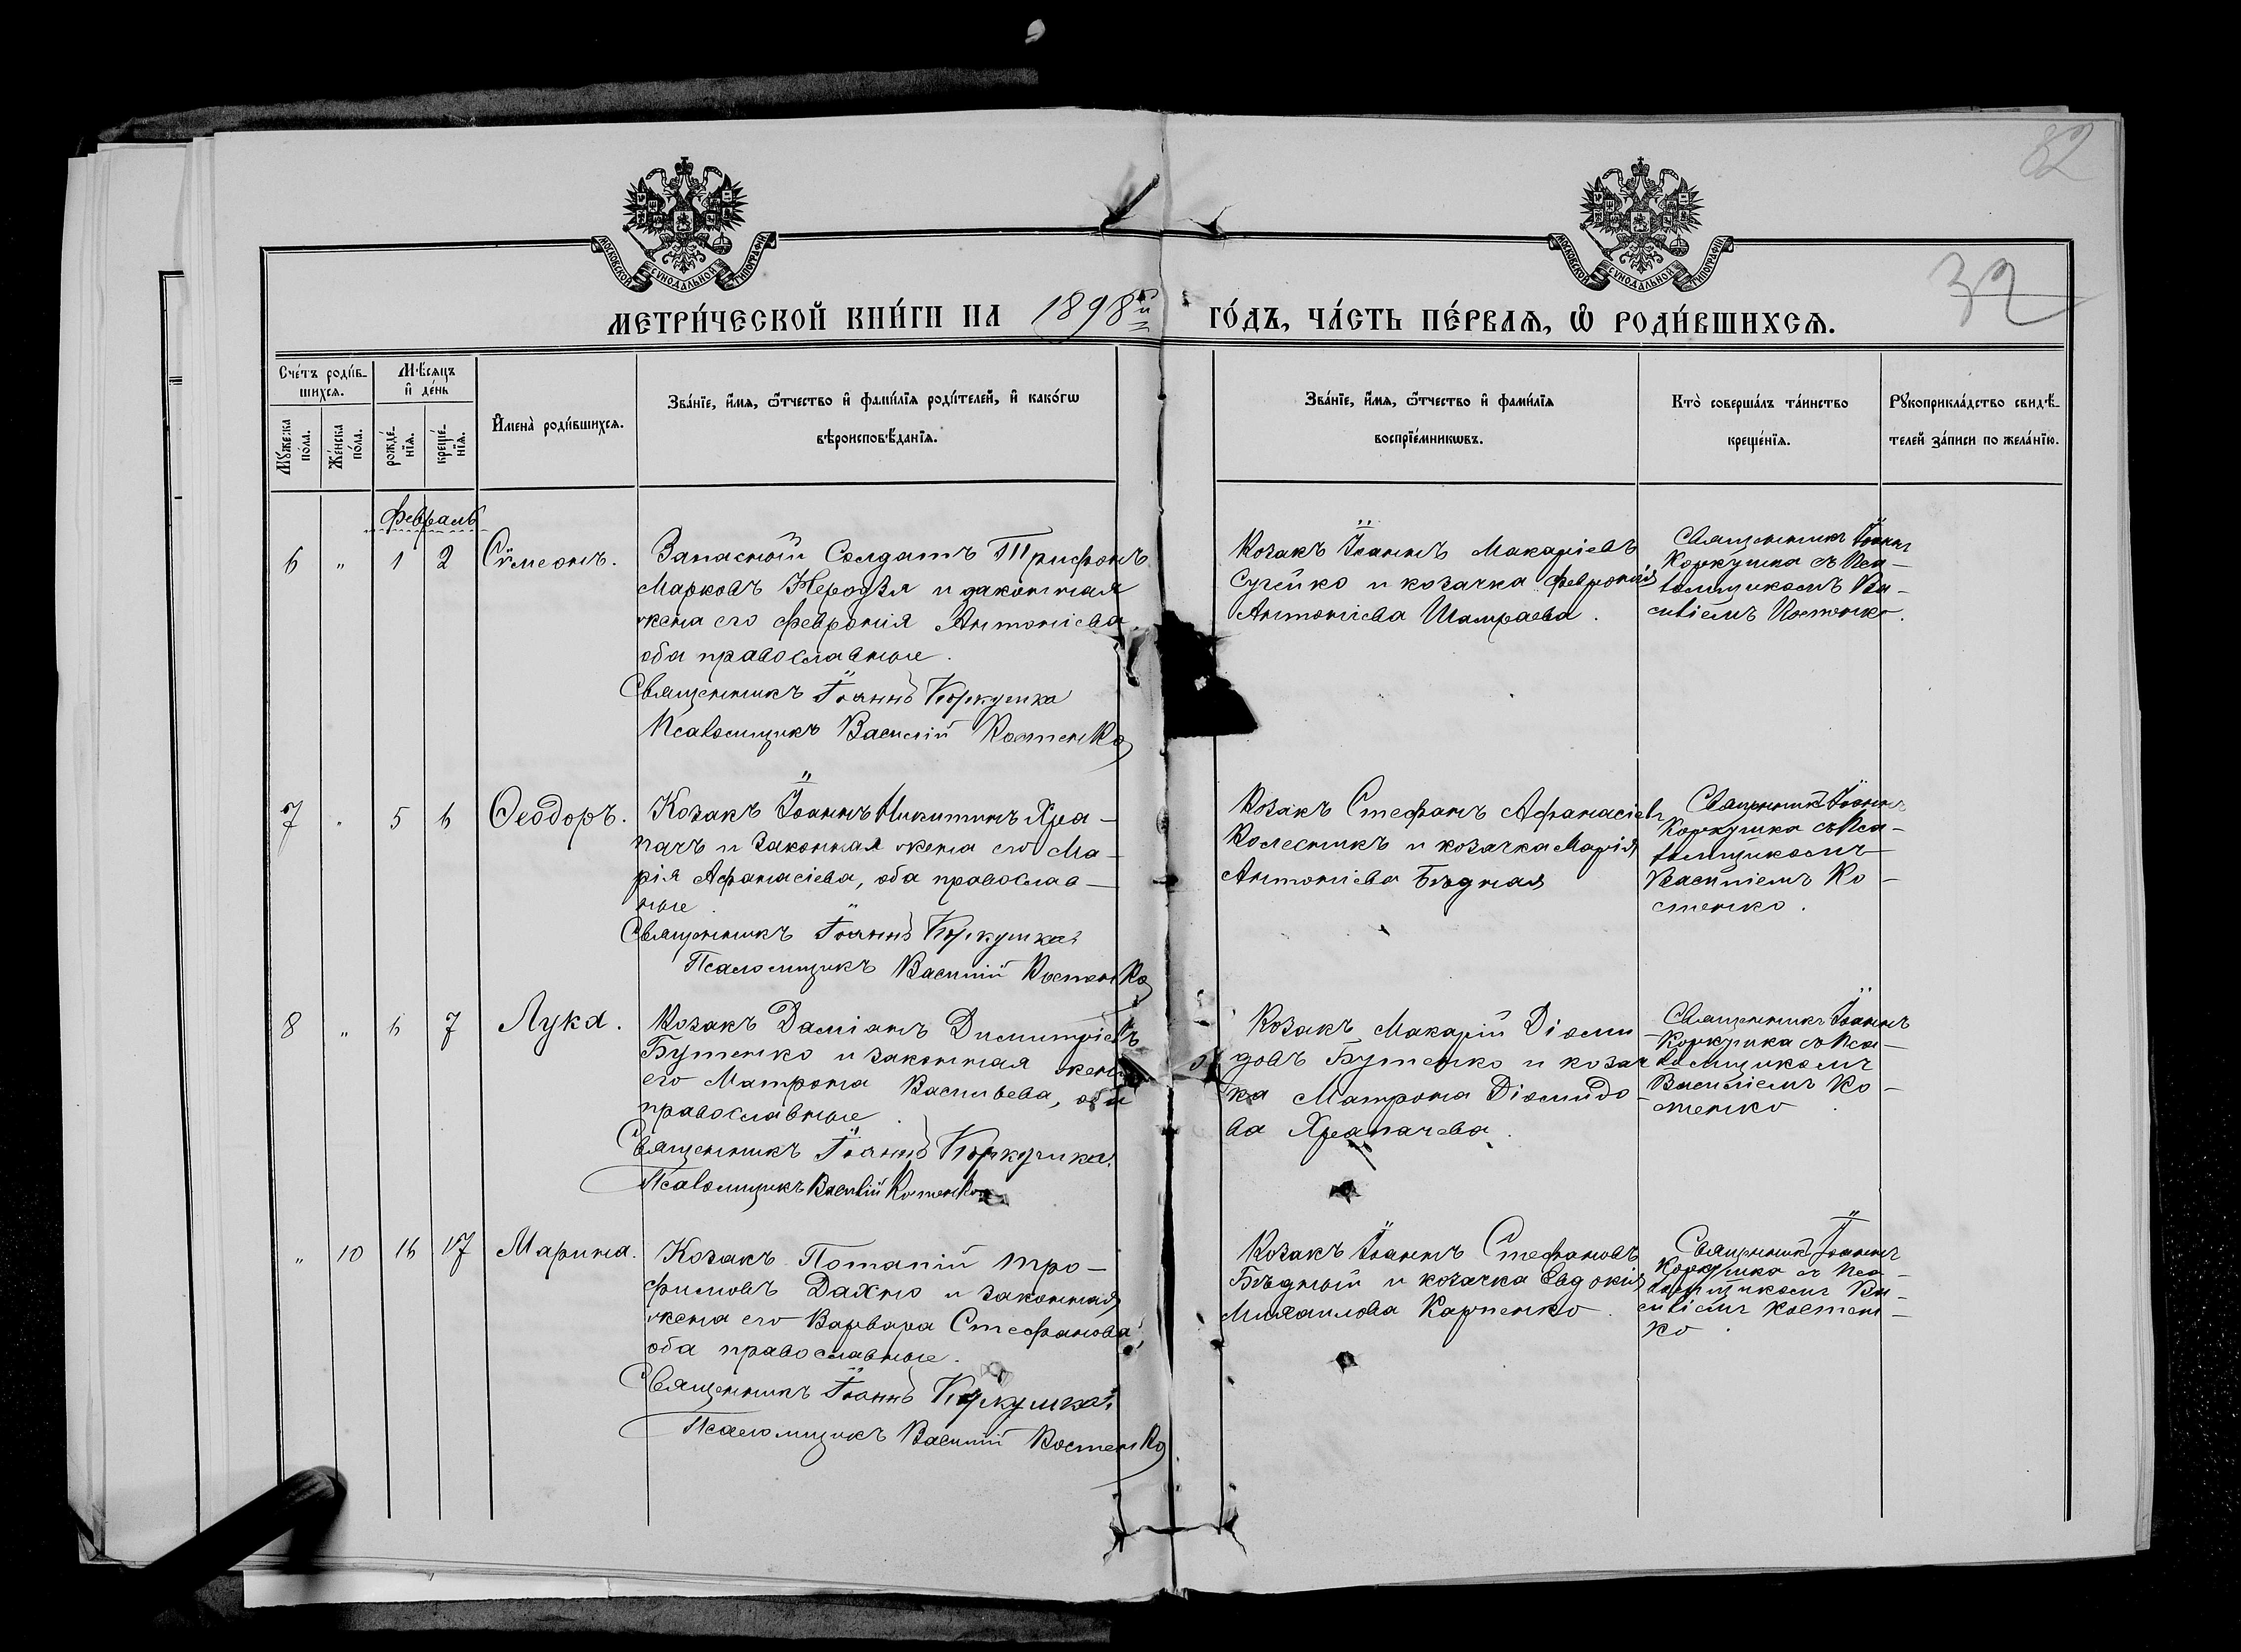 82
32
МОСКОВСКОЙ СУНОДАЛЬНОЙ ТИПОГРАФІИ
МОСКОВСКОЙ СУНОДАЛЬНОЙ ТИПОГРАФІИ
МЕТРИ́ЧЕСКОЙ КНИ́ГИ НА 1898й ГО́ДЪ, ЧА́СТЬ ПЕ́РВАѦ, Ѡ РОДИ́ВШИХСѦ.
Сче́тъ роди́в-
шихсѧ.
Мꙋ́жеска
по́ла.
Же́нска
по́ла.
Мѣ́сѧцъ
и҆ де́нь
рожде́-
нїѧ.
креще́-
нїѧ.
И҆мена̀ роди́вшихсѧ.
Зва́нїе, и҆́мѧ, ѻ҆́тчество и҆ фамѝлїѧ роди́телей, и҆ како́гѡ
вѣроисповѣ́данїѧ.
Зва́нїе, и҆́мѧ, ѻ҆́тчество и҆ фамѝлїѧ
воспрїе́мникѡвъ.
Кто̀ соверша́лъ та́инство
креще́нїѧ.
Рꙋкоприкла́дство свидѣ́-
телей за́писи по жела́нїю.
Февраль
6 " 1 2 Сѵмеонъ.
Запасный Солдатъ Трифонъ
Марковъ Неродзя и законная
жена его Феврония Антоніева
оба православные.
Священникъ Іоаннъ Коркушка
Псаломщикъ Василій Костенко
Козакъ Іоаннъ Макаріевъ
Сугейко и козачка Февронія
Антоніева Шамраева.
Священникъ Іоаннъ
Коркушка съ Пса-
ломщикомъ Ва-
силіемъ Костенко.
7 " 5 6 Ѳеодоръ.
Козакъ Іоаннъ Никитинъ Хра-
пачъ и законная жена его Ма-
рія Афанасіева, оба православ-
ные.
Священникъ Іоаннъ Коркушка
Псаломщикъ Василій Костенко
Козакъ Стефанъ Афанасіевъ
Колесникъ и козачка Марія
Антоніева Бѣдная
Священникъ Іоаннъ
Коркушка съ Пса-
ломщикомъ
Василіемъ Ко-
стенко.
8 " 6 7 Лука.
Козакъ Даміанъ Димитріевъ
Бутенко и законная жена
его Матрона Васильева, оба
православные.
Священникъ Іоаннъ Коркушка
Псаломщикъ Василій Костенко
Козакъ Макарій Діоми
довъ Бутенко и козач
ка Матрона Діомидо-
ва Храпачева.
Священникъ Іоаннъ
Коркушка съ Пса-
ломщикомъ
Василіемъ Ко-
стенко.
" 10 16 17 Марина.
Козакъ Потапій Тро-
фимовъ Дахно и законная
жена его Варвара Стефанова,
оба православные.
Священникъ Іоаннъ Коркушка
Псаломщикъ Василій Костенко
Козакъ Іоаннъ Стефановъ
Бѣдный и козачка Евдокія
Михаилова Карпенко.
Священникъ Іоаннъ
Коркушка съ Пса-
ломщикомъ Ва-
силіемъ Костен-
ко.